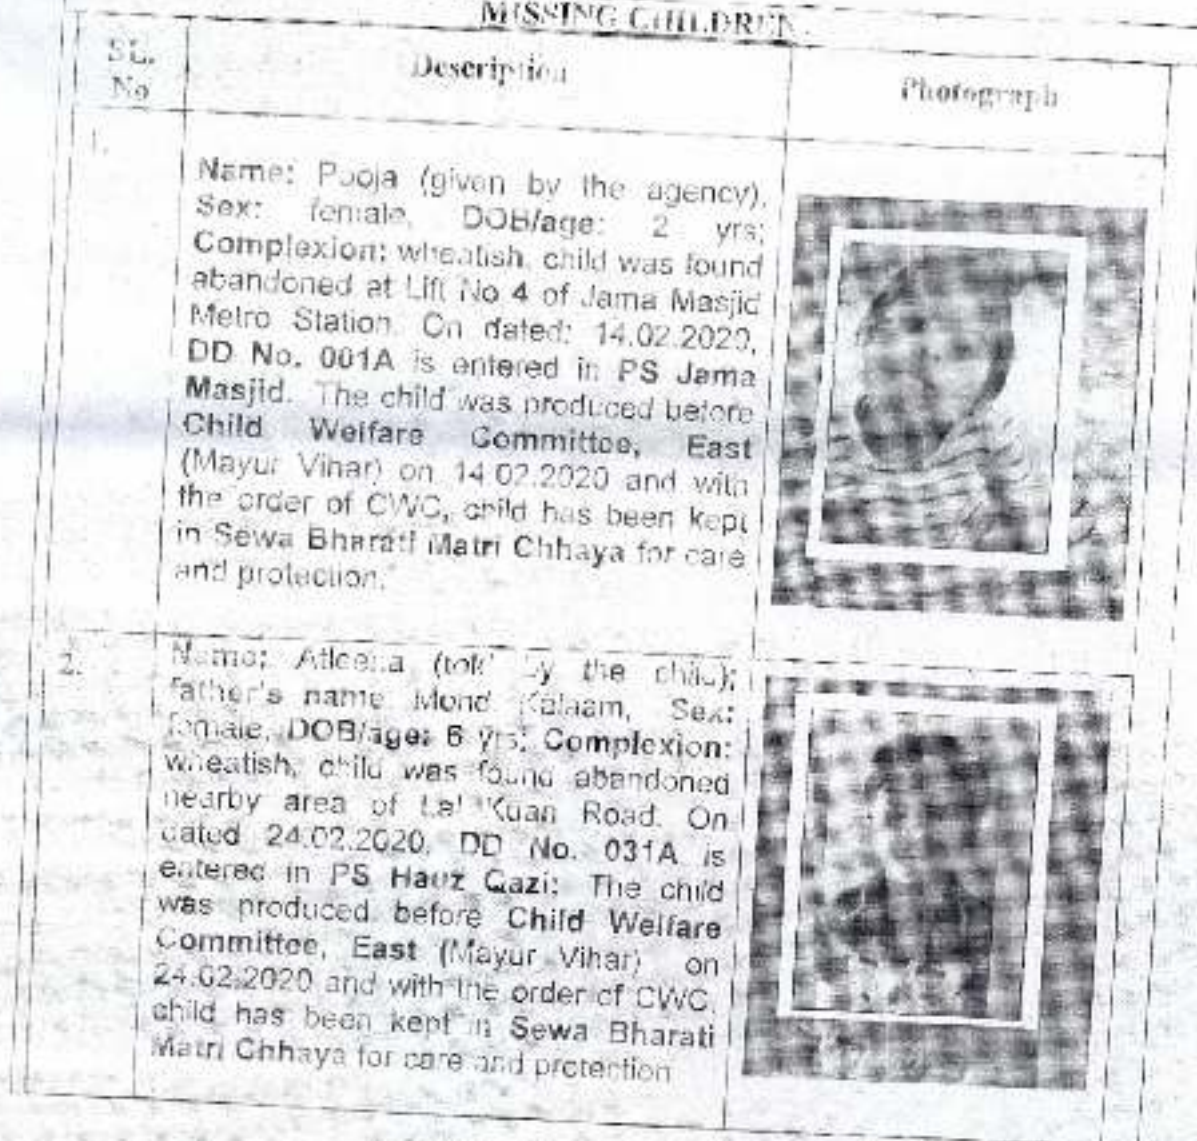 MISSING CHILDREN
SL.
No
Description
Photograph
1.
Name: Pooja (given by the agency),
Sex: female, DOB/age: 2 yrs;
Complexion: wheatish, child was found
abandoned at Lift No 4 of Jama Masjid
Metro Station. On dated: 14.02.2020,
DD No. 001A is entered in PS Jama
Masjid. The child was produced before
Child Welfare Committee, East
(Mayur Vihar) on 14.02.2020 and with
the order of CWC, child has been kept
in Sewa Bharati Matri Chhaya for care
and protection.
2.
Name: (told by the child);
father's name Mohd Kalaam, Sex:
female, DOB/age: 6 yrs; Complexion:
wheatish, child was found abandoned
nearby area of Lal Kuan Road. On
dated 24.02.2020, DD No. 031A is
entered in PS Hauz Qazi: The child
was produced before Child Welfare
Committee, East (Mayur Vihar) on
24.02.2020 and with the order of CWC,
child has been kept in Sewa Bharati
Matri Chhaya for care and protection